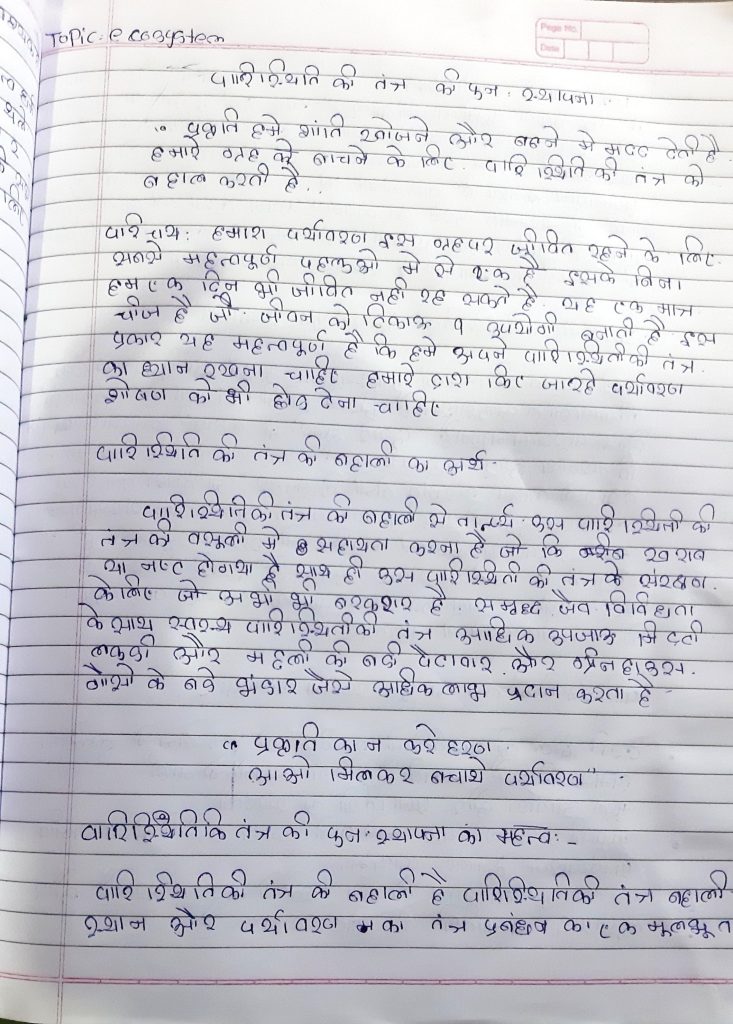 Topic: ecosystem
Page No.
Date
पारिस्थिति की तंत्र की पुन: स्थापना
" प्रकृति हमे शांति खोजने और बढने मे मदद देती है
हमारे ग्रह को बाचने के लिए पारि स्थिति की तंत्र को
बहाल करती है.
पारिचय: हमारा पर्यावरण इस ग्रहपर जीवित रहने के लिए
सबसे महत्वपूर्ण पहलुओ मे से एक है इसके बिना
हम एक दिन भी जीवित नही रह सकते है. यह एक मात्र
चीज है जो जीवन को टिकाऊ व उपयोगी बनाती है इस
प्रकार यह महत्वपूर्ण है कि हमे अपने पारिस्थितीकी तंत्र
का ध्यान रखना चाहिए हमारे द्वारा किए जारहे पर्यावरण
शोषण को भी रोक देना चाहिए
पारि स्थिति की तंत्र की बहाली का अर्थ-
पारिस्थितिकी तंत्र की बहाली से तात्पर्य उस पारि स्थिती की
तंत्र की वसूली मे सहायता करना है जो कि खराब
या नष्ट होगया है साथ ही उस पारिस्थिती की तंत्र के संरक्षण
के लिए जो अभी भी बरकरार है. समृध्द जैव विविधता
के साथ स्वस्थ पारिस्थितीकी तंत्र आधिक उपजाऊ मिटटी
लकडी और मछली की बडी पैदावार और ग्रीनहाऊस
गैसो के बडे भंडार जैसे आधिक लाभ प्रदान करता है-
" प्रकृति का न करे हरण
आओ मिलकर बचाये पर्यावरण"
पारिस्थितिकि तंत्र की पुन: स्थापना का महत्व: -
पारि स्थितिकी तंत्र की बहाली है पारिस्थितिकी तंत्र बहाली
स्थान और पर्यावरण का तंत्र प्रबंधन का एक मूलभूत